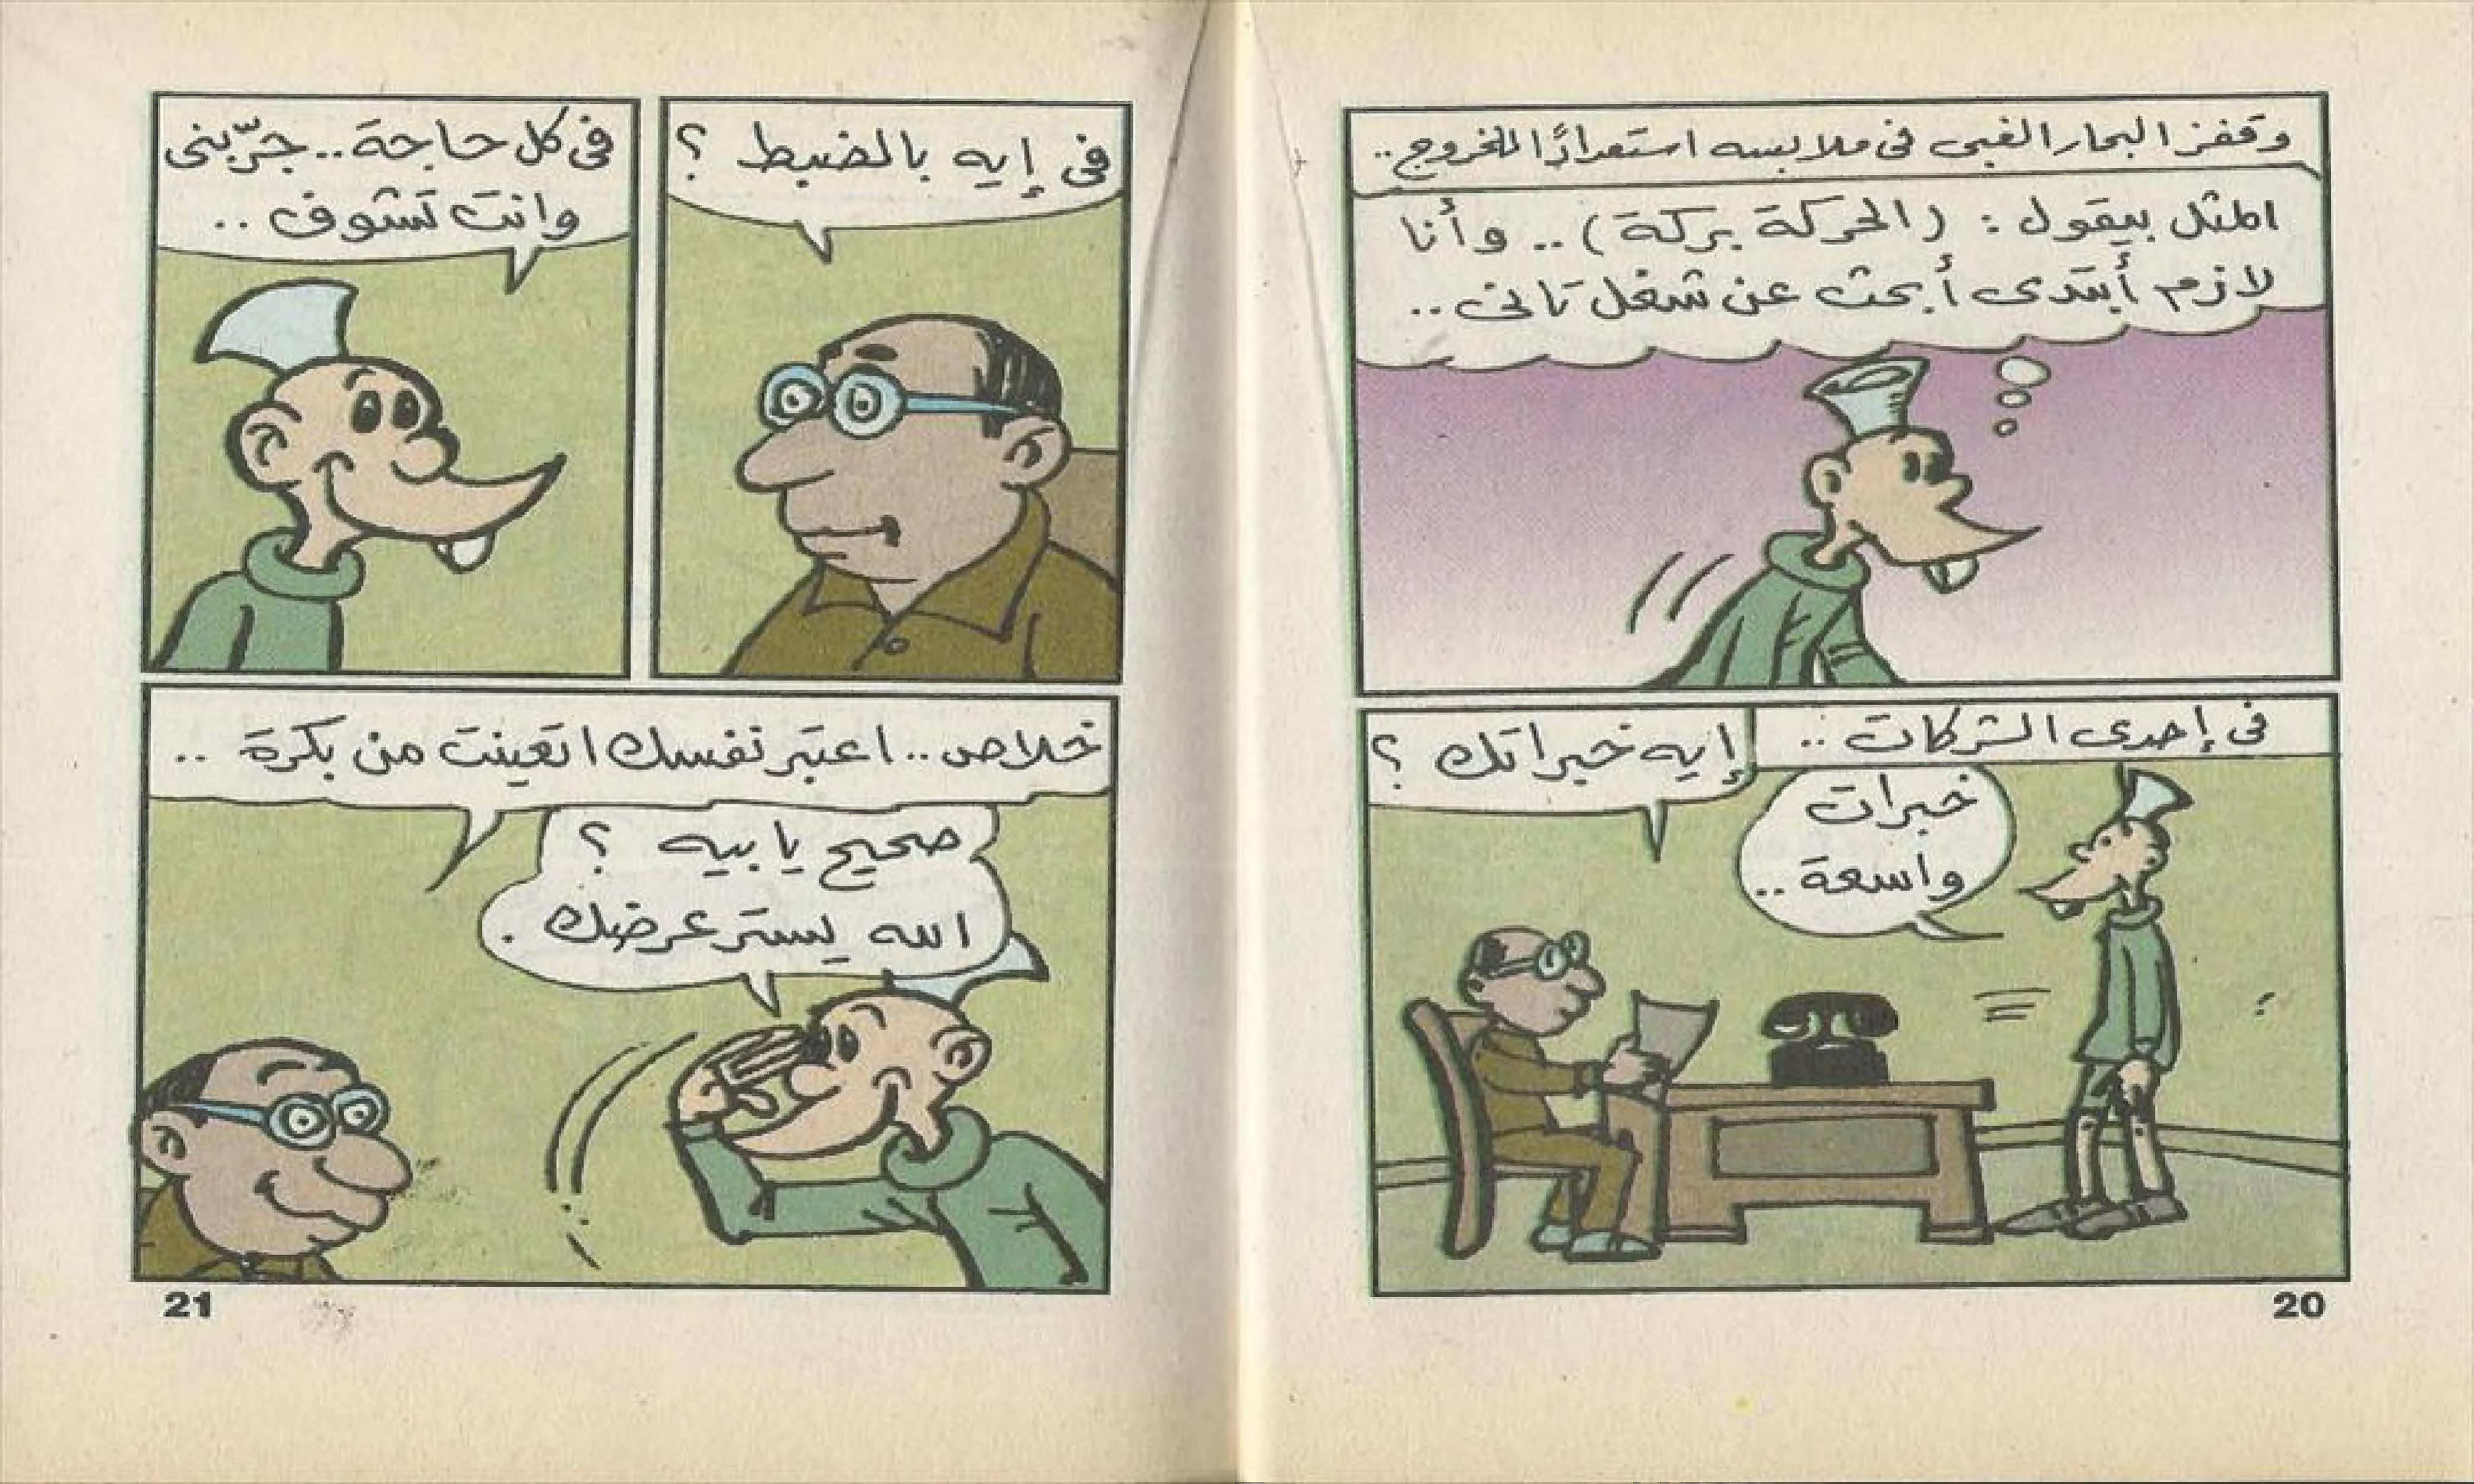 وقفز البحار الغبى فى ملابسه استعدادًا للخروج..
المثل بيقول : (الحركة بركة) .. وأنا
لازم أبتدى أبحث عن شغل تانى ..
فى إحدى الشركات ..
إيه خبراتك ؟
خبرات
واسعة ..
20
فى إيه بالضبط ؟
فى كل حاجة .. جرّبنى
وانت تشوف ..
خلاص .. اعتبر نفسك اتعينت من بكرة ..
صحيح يا بيه ؟
الله يستر عرضك .
21